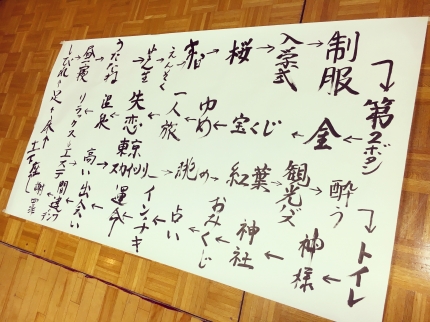 桜→
入学式→
制服
第2ボタン
金
宝くじ
ゆめ
一人旅
失恋
温泉
リラックス
エステ
高い
東京スカイツリー
眺め
紅葉
観光バス
酔う
トイレ
神様
神社
おみくじ
占い
インチキ
運命
出会い
謝罪
土下座
床
足
しびれ
昼寝
うたたね
芝生
えんそく